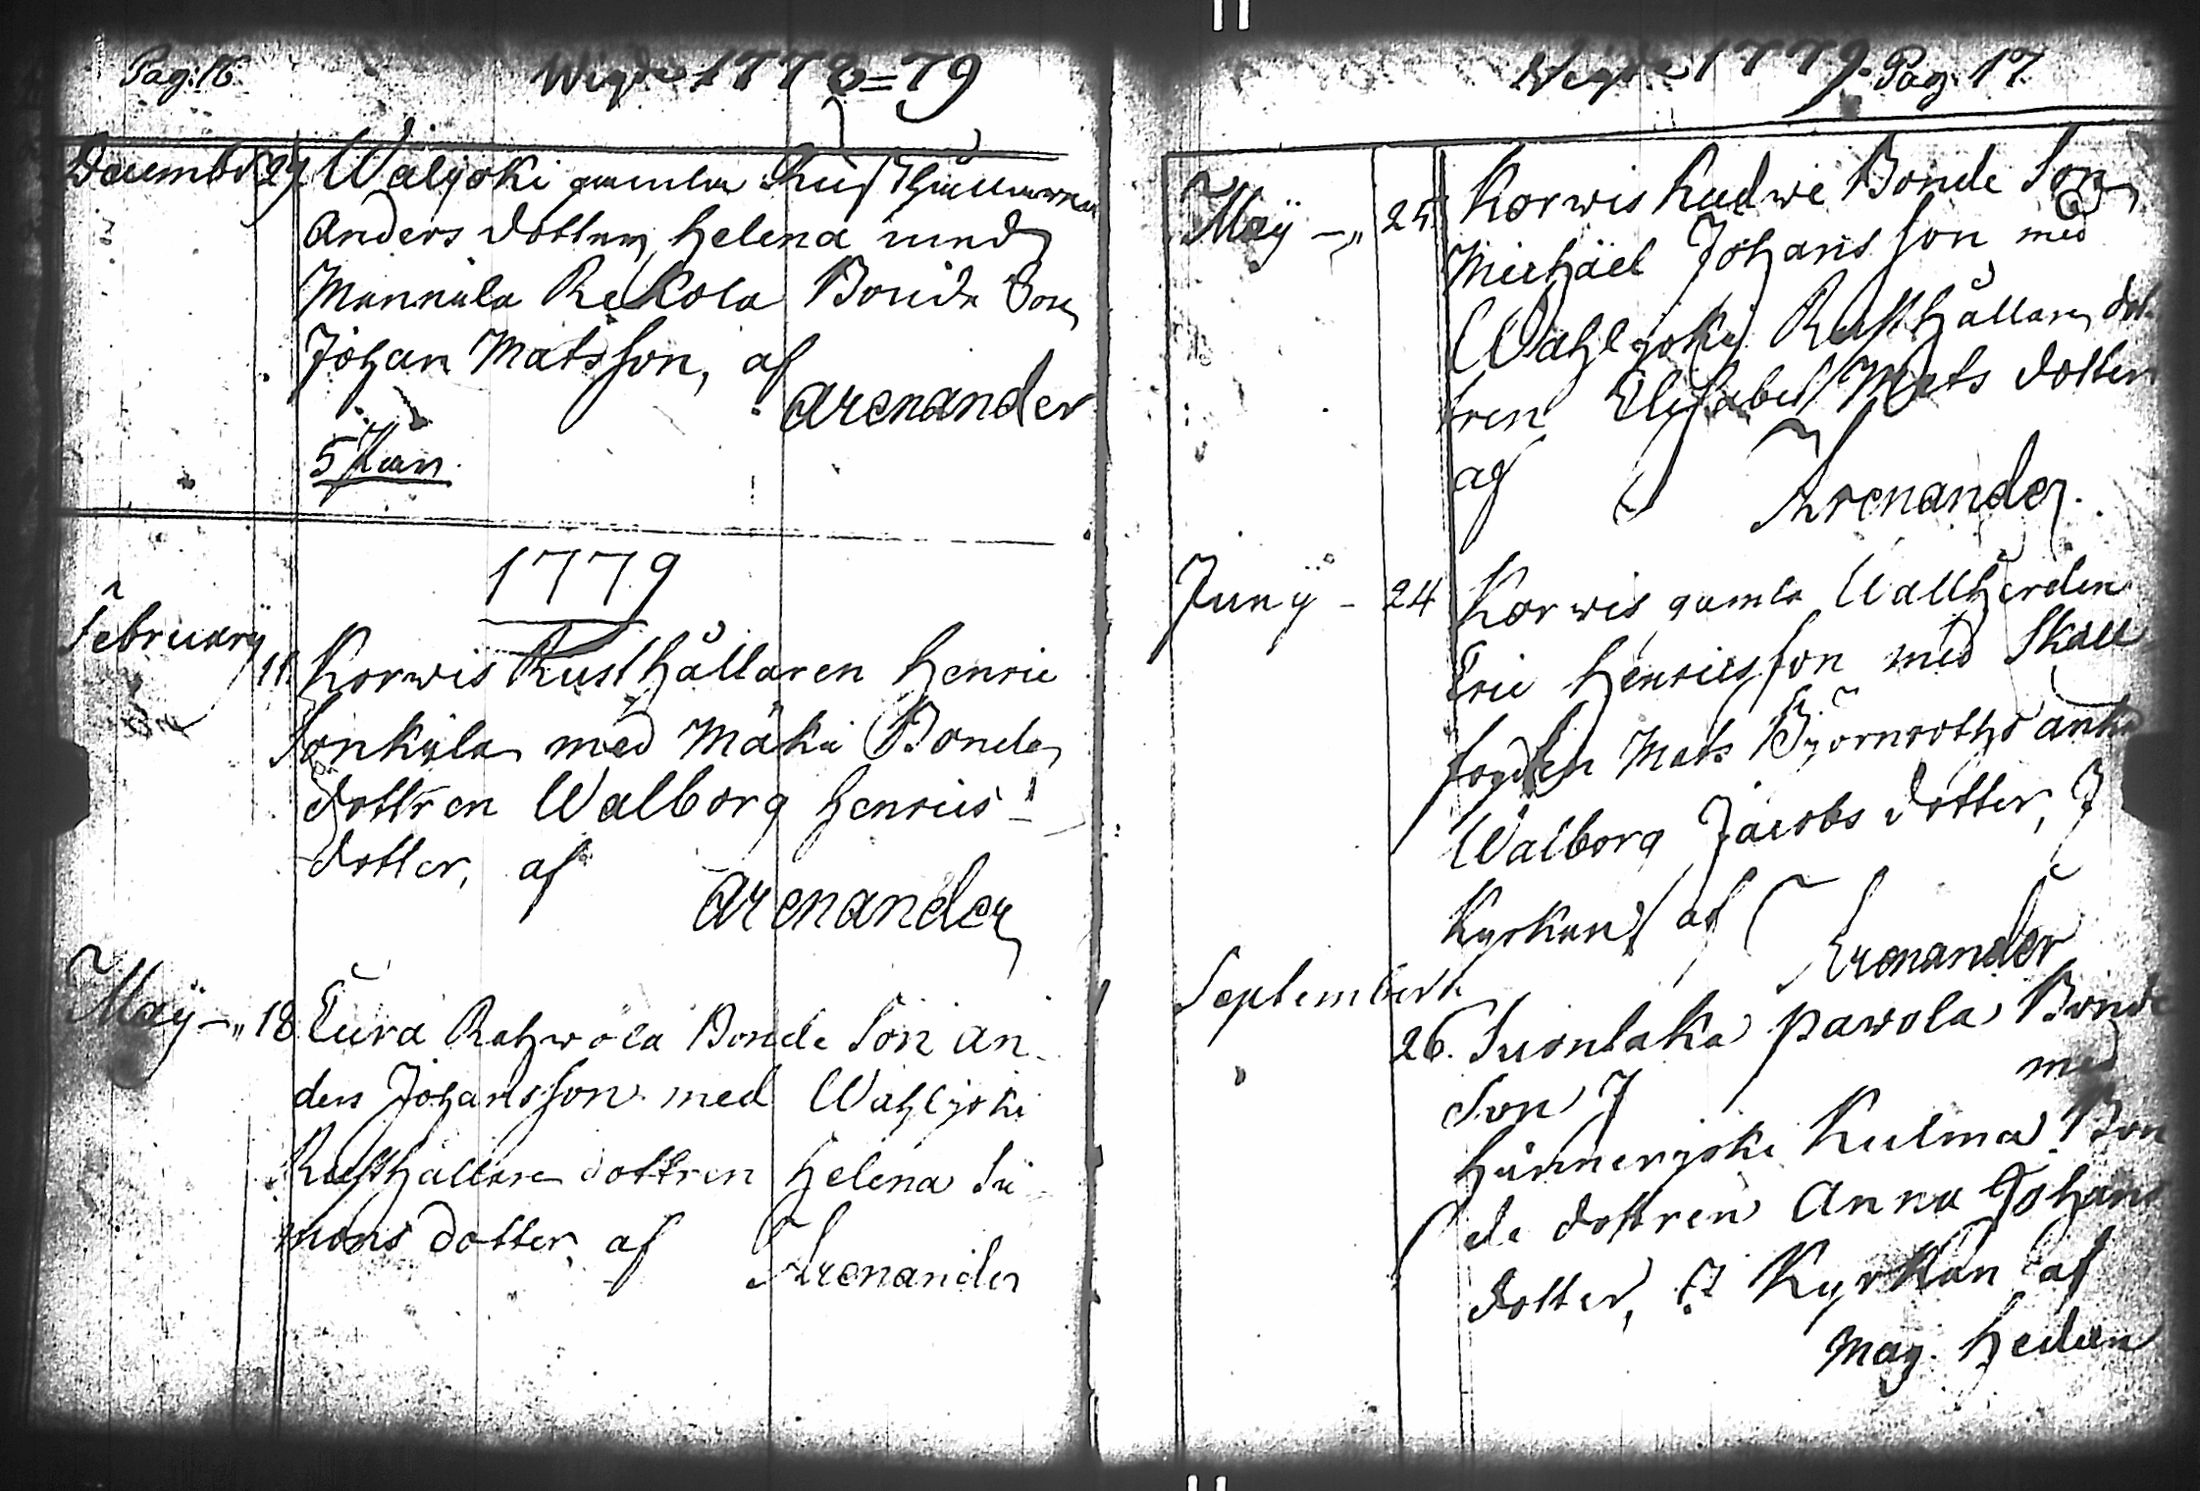 Pag: 16
Wigde 1778=79
Decembr 27 Waljoki gamla Rusthållaren
Anders dotter, Helena med
Mannila Rekola Bonde Son
Johan Matsson, af
Arenander
5 Par
1779
February
11. Korwis Rusthållaren Henric
Sonkila med Mäki Bonde
dottren Walborg Henrics
dotter, af
Arenander
Maÿ – 18 Eura Rahwola Bonde Son An
ders Johansson med Wahljoki
Rusthållare dottren Helena Si
mons dotter, af
Arenander
Wigde 1779. Pag. 17
Maÿ – 25. Korwis Kudwe Bonde Son
Michäel Johansson med
Wahljoki Rusthållare dot
tren Elisabet Mats dotter
af
Arenander.
Junÿ – 24 Korwis gamla Wallherden
Eric Henricsson med Skall
fogden Mats Björnroths änka
Walborg Jacobs dotter, J
Kyrkan af
Arenander
September
26. Suontaka Pawola Bonde
Son J med
Hinnerjoki Kulma Bon
de dottren Anna Johans
dotter, J Kyrkan af
Mag. Heden